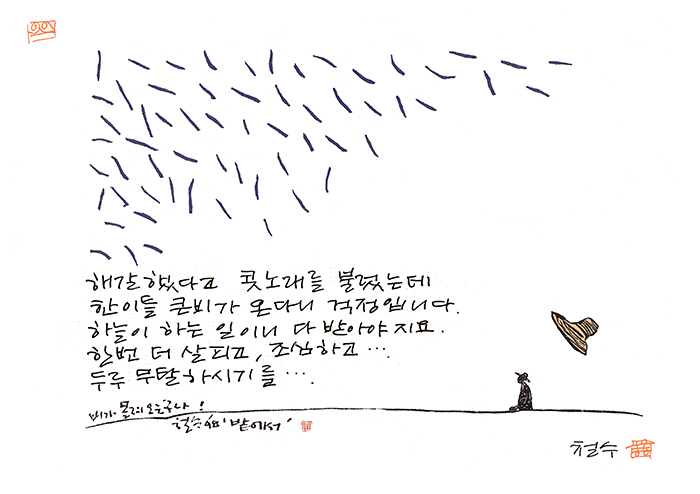 해갈했다고 콧노래를 불렀는데
한이틀 큰비가 온다니 걱정입니다.
하늘이 하는 일이니 다 받아야지요.
한번 더 살피고, 조심하고 ….
두루 무탈하시기를 ….
비가 몰려오는구나!
철수 '밭에서'
철수